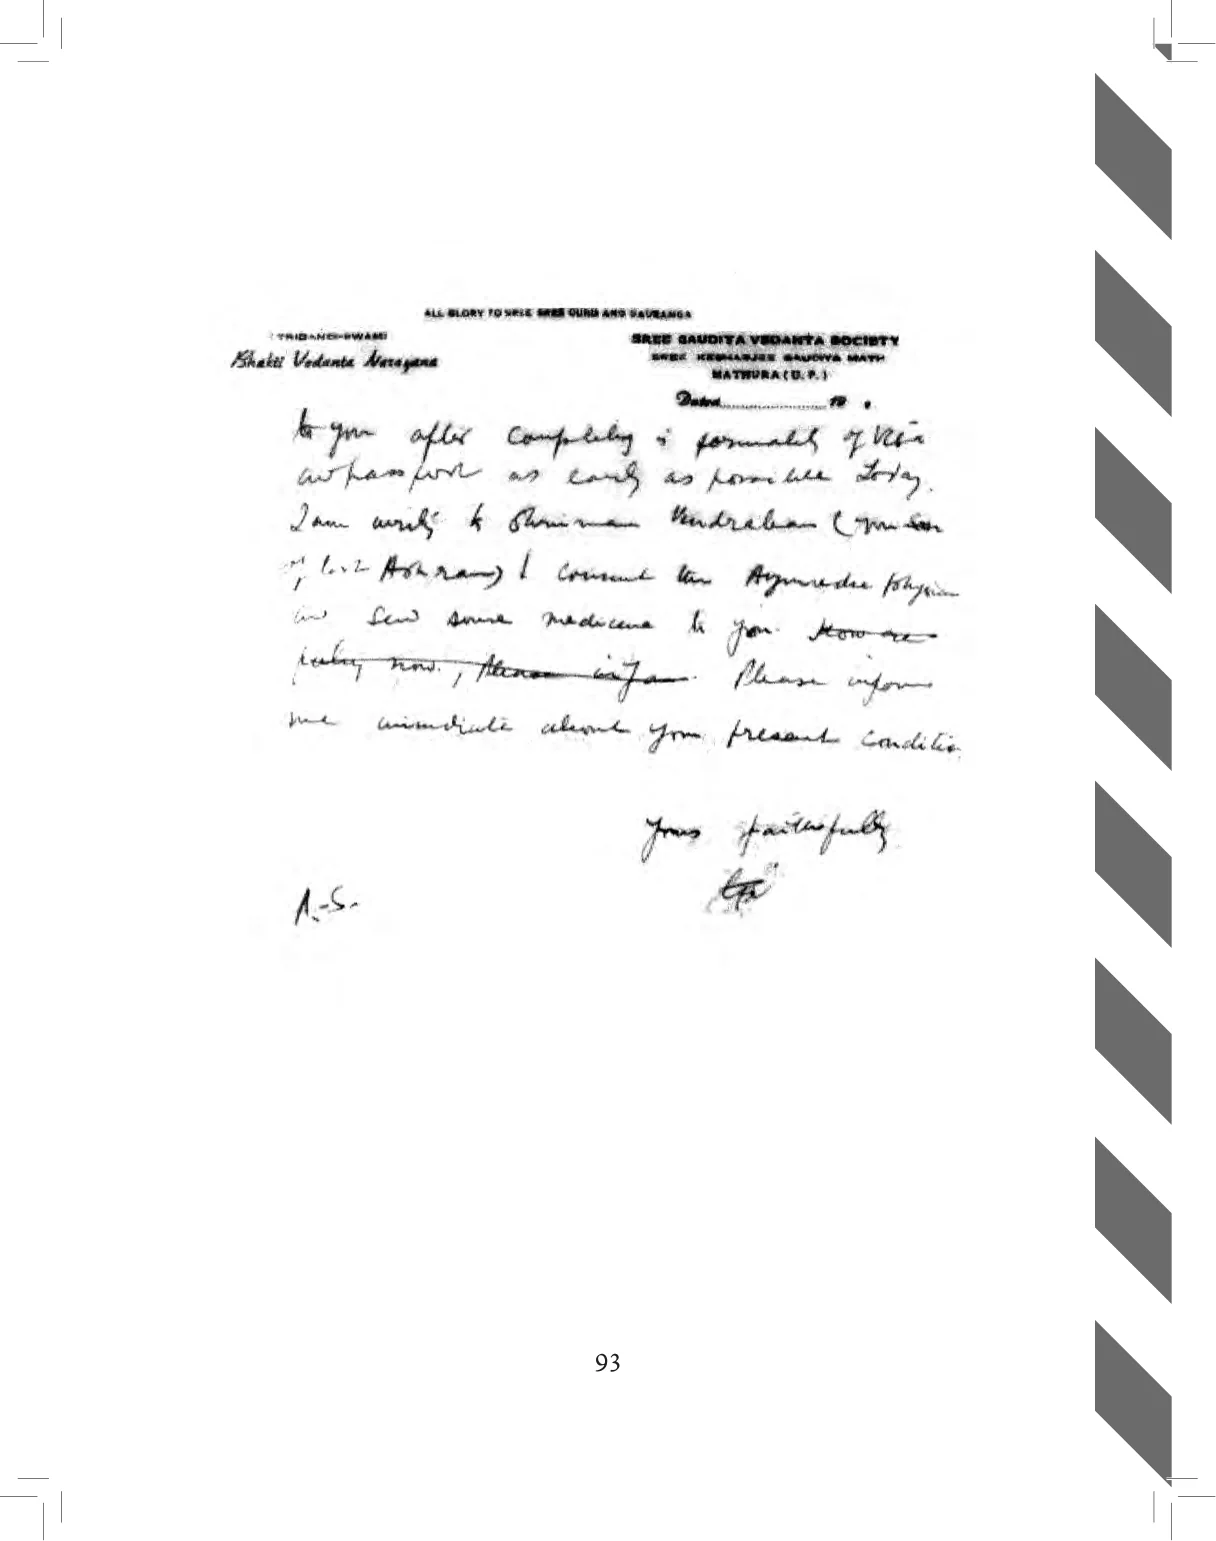 ALL GLORY TO SREE SREE GURU AND GAURANGA
TRIDANDI-SWAMI
Bhakti Vedanta Narayana
SREE GAUDIYA VEDANTA SOCIETY
SREE KESHABJEE GAUDIYA MATH
MATHURA ( U. P. )
Dated 19 .
to you after completing formality of Visa
as early as possible Today.
I am writing to Shriman Vrndraban ( your son
of last Ashram) consult the Ayurvedic
and send some medicine to you. How are
feeling now, Please inform. Please inform
me immediate about your present condition
Yours faithfully
A.-S.
93